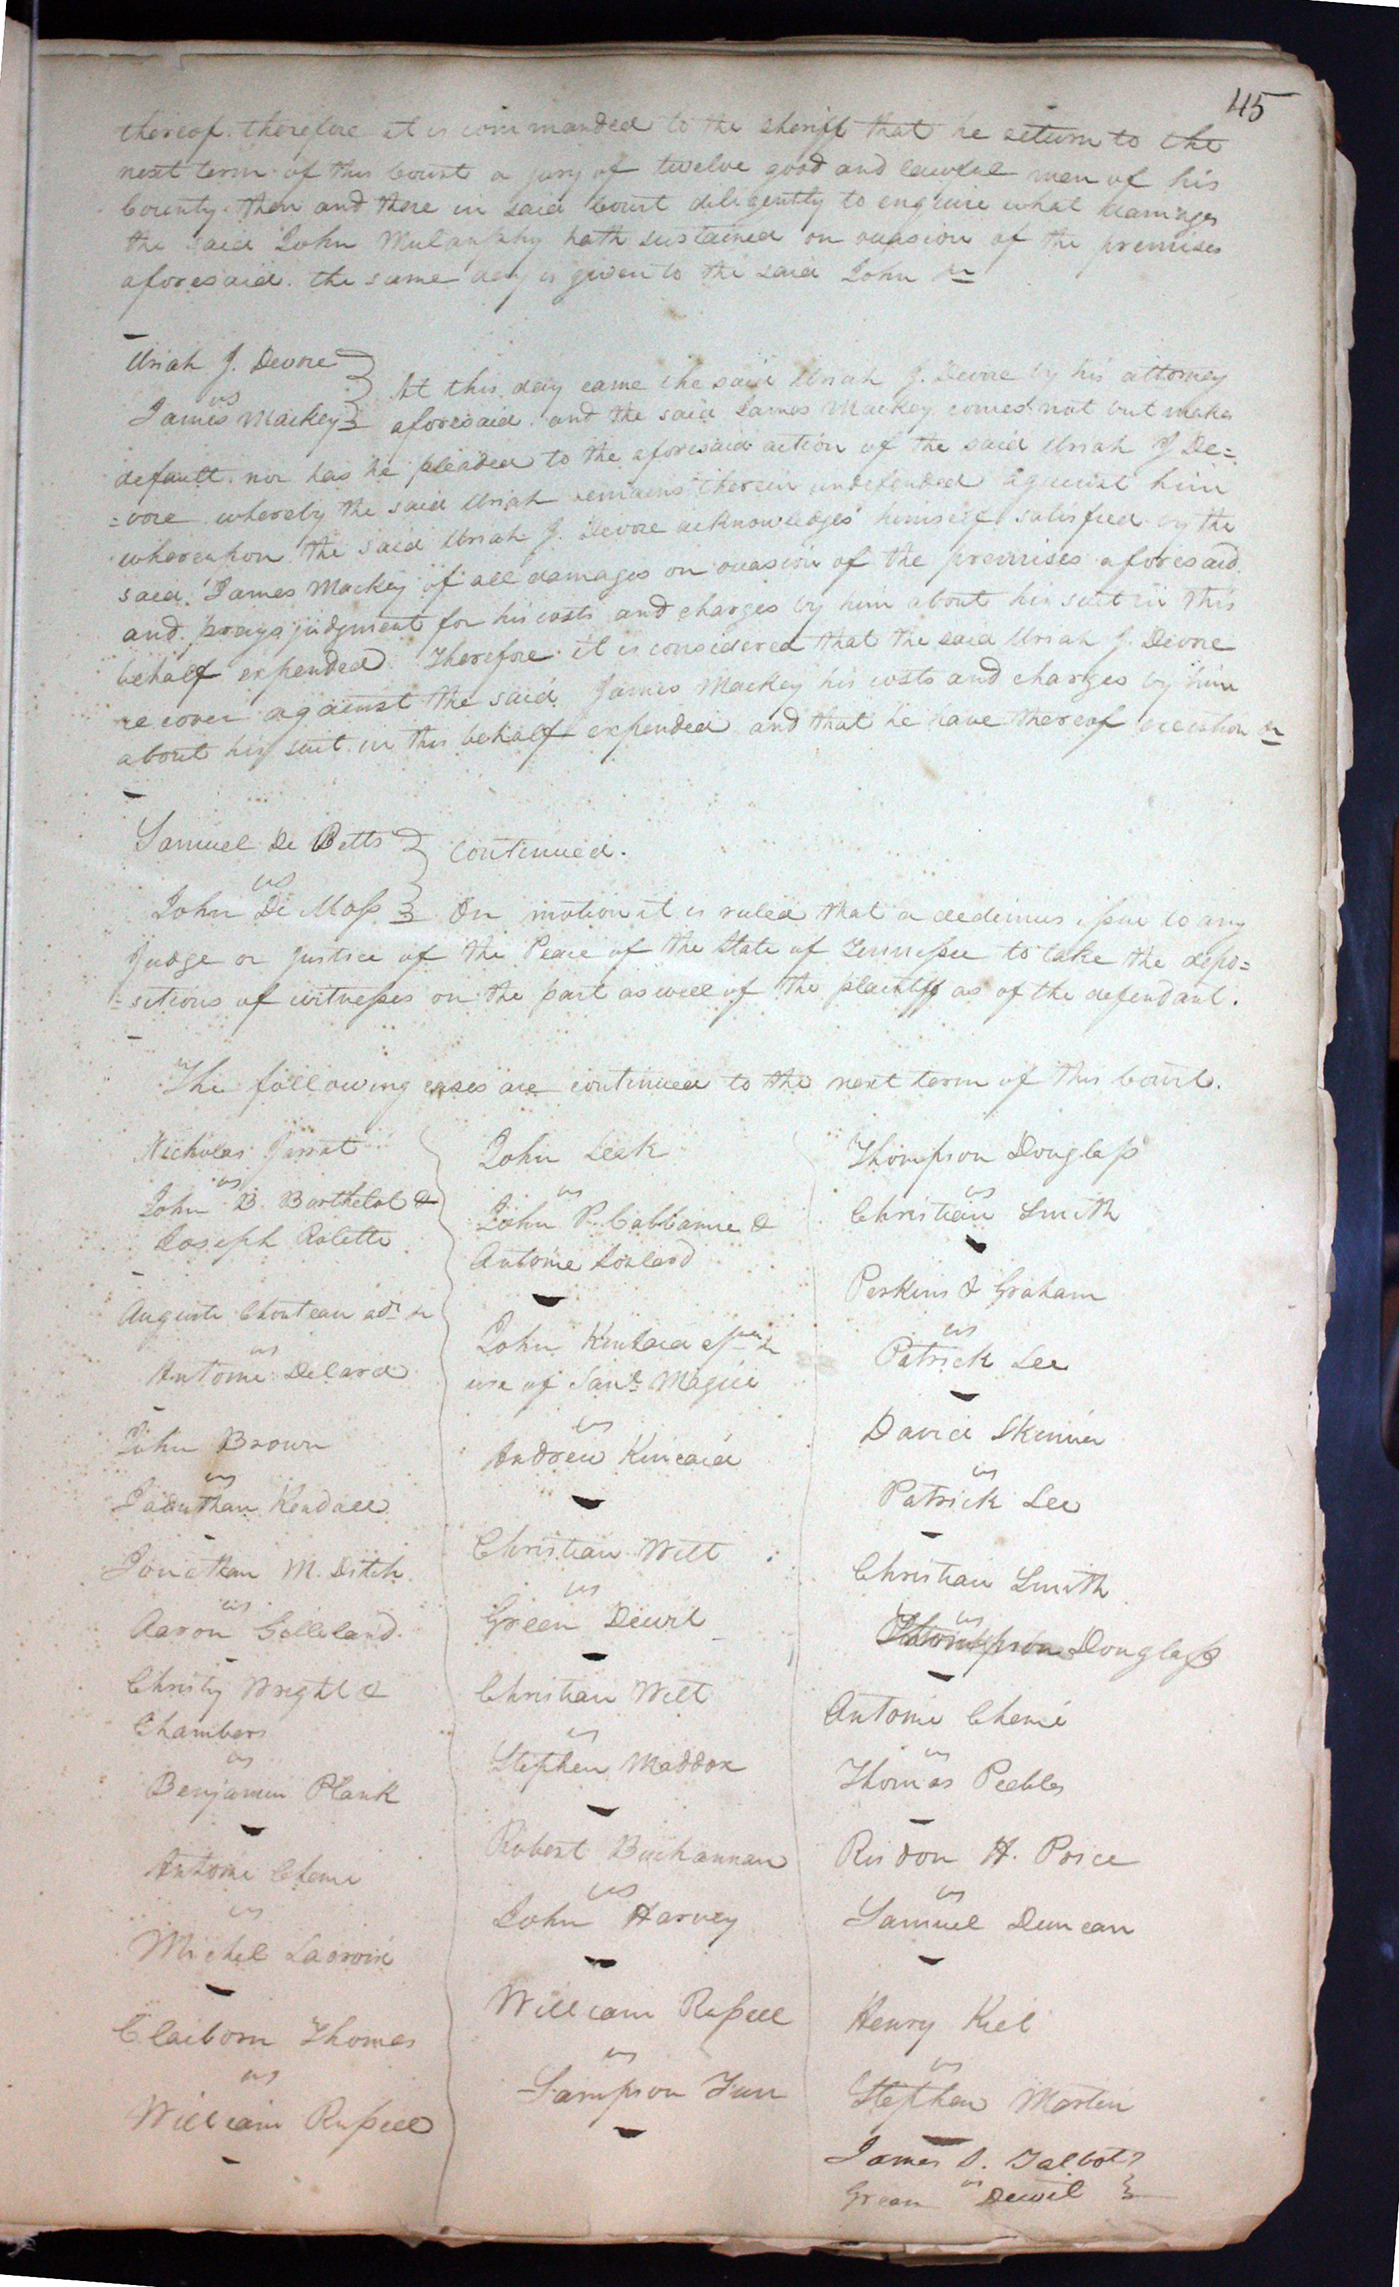 45
thereof. therefore it is commanded to the sheriff that he return to the
next term of this Court a jury of twelve good and lawful men of his
County. then and there in said Court diligently to enquire what damages
the said John Mulanphy hath sustained on occasion of the premises
aforesaid. the same day is given to the said John &c
Uriah J. Devore
vs
James Mackey
At this day came the said Uriah J. Devore by his attorney
aforesaid. and the said James Mackey comes not but makes
default. nor has he pleaded to the aforesaid action of the said Uriah J De=
=vore whereby the said Uriah remains therein undefended against him
whereupon the said Uriah J. Devore acknowledges himself satisfied by the
said James Mackey of all damages on occasion of the premises aforesaid.
and prays judgment for his costs and charges by him about his suit in this
behalf expended. Therefore it is considered that the said Uriah J. Devore
recover against the said James Mackey his costs and charges by him
about his suit in this behalf expended and that he have thereof execution &c
Samuel De Betts
vs
John De Moss
Continued.
On motion it is ruled that a dedimus issue to any
Judge or Justice of the Peace of the State of Tennessee to take the depo=
=sitions of witnesses on the part as well of the plaintiff as of the defendant.
The following cases are continued to the next term of this Court.
Nicholas Jarrot
vs
John B. Barthelot &
Joseph Rolette
Auguste Chouteau adr &c
vs
Antoine Delard
John Brown
vs
Jonathan Kendall
Jonathan M. Ditch
vs
Aaron Golleland.
Christy Wright &
Chambers
vs
Benjamin Plank
Antoine Chene
vs
Michel Lacroix
Claiborn Thomas
vs
William Russell
John Leek
vs
John P. Cabbanne &
Antoine Soulard
John Kinkaid
use of Magill
vs
Andrew Kincaid
Christian Wilt
vs
Green Dewit
Christian Wilt
vs
Stephen Maddox
Robert Buchannan
vs
John Harvey
William Russell
vs
Sampson
Thompson Douglass
vs
Christian Smith
Perkins & Graham
vs
Patrick Lee
David Skinner
vs
Patrick Lee
Christian Smith
vs
Thompson Douglass
Antoine Chené
vs
Thomas Peebles
Risdon H. Price
vs
Samuel Duncan
Henry Kiel
vs
Stephen Martin
James S. Talbot
vs
Green Dewit